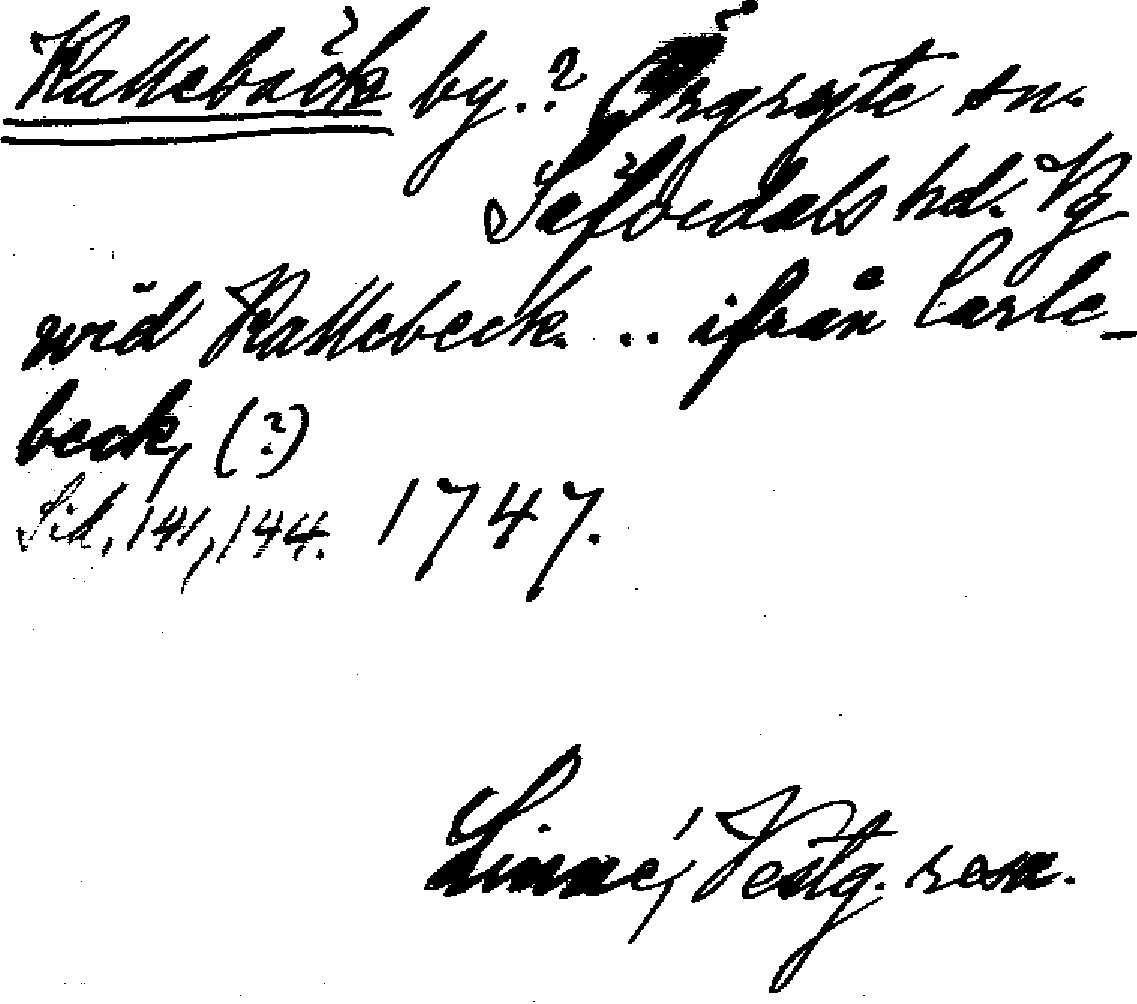 Kallebäck by.? Örgryte sn.
Säfvedals hd. Vg
wid Kallebeck. .. ifrån Carle-
beck, (?)
Sid. 141, 144. 1747.
Linné, Vestg. resa.